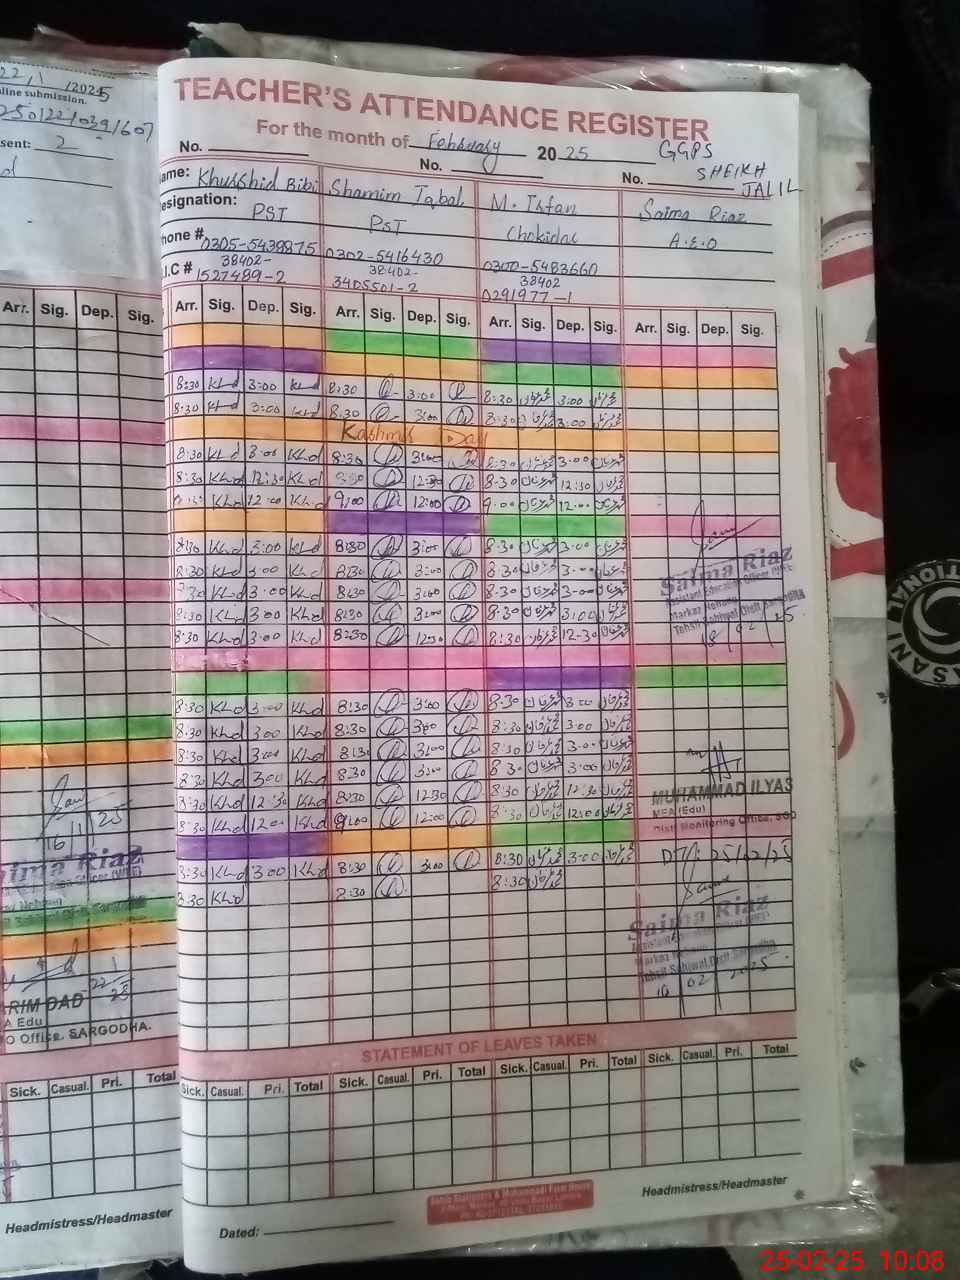 22/1/2025
line submission.
sent: 2
TEACHER'S ATTENDANCE REGISTER
For the month of February 2025 GGPS
SHEIKH
JALIL
No. No. No.
Name: Khurshid Bibi Shamim Iqbal M. Irfan Saima Riaz
Designation: PST PST Chokidar A.E.O
Phone # 0305-5439875 0302-5416430 0300-5483660
I.C # 38402-1527489-2 38402-3405501-2 38402 0291977-1
Arr. Sig. Dep. Sig. Arr. Sig. Dep. Sig. Arr. Sig. Dep. Sig. Arr. Sig. Dep. Sig. Arr. Sig. Dep. Sig.
8:30 Khd 3:00 Khd 8:30 3:00 8:30 عرفان 3:00 عرفان
8:30 Khd 3:00 Khd 8:30 3:00 8:30 عرفان 3:00 عرفان
Kashmir Day
8:30 Khd 3:00 Khd 8:30 3:00 8:30 عرفان 3:00 عرفان
8:30 Khd 12:30 Khd 8:30 12:30 8:30 عرفان 12:30 عرفان
Khd 12:00 Khd 9:00 12:00 9:00 عرفان 12:00 عرفان
8:30 Khd 3:00 Khd 8:30 3:00 8:30 عرفان 3:00 عرفان
8:30 Khd 3:00 Khd 8:30 3:00 8:30 عرفان 3:00 عرفان
8:30 Khd 3:00 Khd 8:30 3:00 8:30 عرفان 3:00 عرفان
8:30 Khd 3:00 Khd 8:30 3:00 8:30 عرفان 3:00 عرفان
8:30 Khd 3:00 Khd 8:30 12:30 8:30 عرفان 12:30 عرفان
Saima Riaz
Assistant Education Officer (WEE)
Markaz Nehang
Tehsil Sahiwal Distt Sargodha
18/02/25
8:30 Khd 3:00 Khd 8:30 3:00 8:30 عرفان 3:00 عرفان
8:30 Khd 3:00 Khd 8:30 3:00 8:30 عرفان 3:00 عرفان
8:30 Khd 3:00 Khd 8:30 3:00 8:30 عرفان 3:00 عرفان
8:30 Khd 3:00 Khd 8:30 3:00 8:30 عرفان 3:00 عرفان
8:30 Khd 12:30 Khd 8:30 12:30 8:30 عرفان 12:30 عرفان
8:30 Khd 12:00 Khd 9:00 12:00 8:30 عرفان 12:00 عرفان
MUHAMMAD ILYAS
MEA (Edu)
Distt Monitoring Office, SGD
DT: 25/02/25
8:30 Khd 3:00 Khd 8:30 3:00 8:30 عرفان 3:00 عرفان
8:30 Khd 8:30 8:30 عرفان
Saima Riaz
Assistant Education Officer (WEE)
Markaz Nehang
Tehsil Sahiwal Distt Sargodha
02 2025
16/1/25
Saima Riaz
22/1/25
ARIM DAD
A Edu
O Office, SARGODHA.
STATEMENT OF LEAVES TAKEN
Sick. Casual. Pri. Total Sick. Casual. Pri. Total Sick. Casual. Pri. Total Sick. Casual. Pri. Total Sick. Casual. Pri. Total
Headmistress/Headmaster
Dated:
Headmistress/Headmaster
25-02-25 10:08